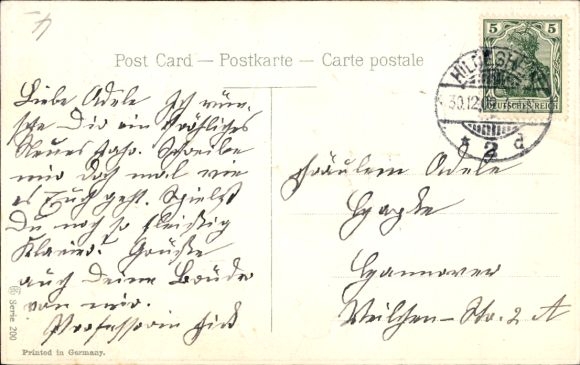 Post Card — Postkarte — Carte postale
5 5
DEUTSCHES REICH
30.12.
* 2 d
Liebe Adele Ich wün-
sche Dir ein fröhliches
Neues Jahr. Schreibe
mir doch mal wie
es Euch geht. Spielst
Du noch so fleißig
Klavier? Grüße
auch Deine Brüder
von mir.
Fräulein Adele
Hannover
Str. 2 A
Serie 200
Printed in Germany.